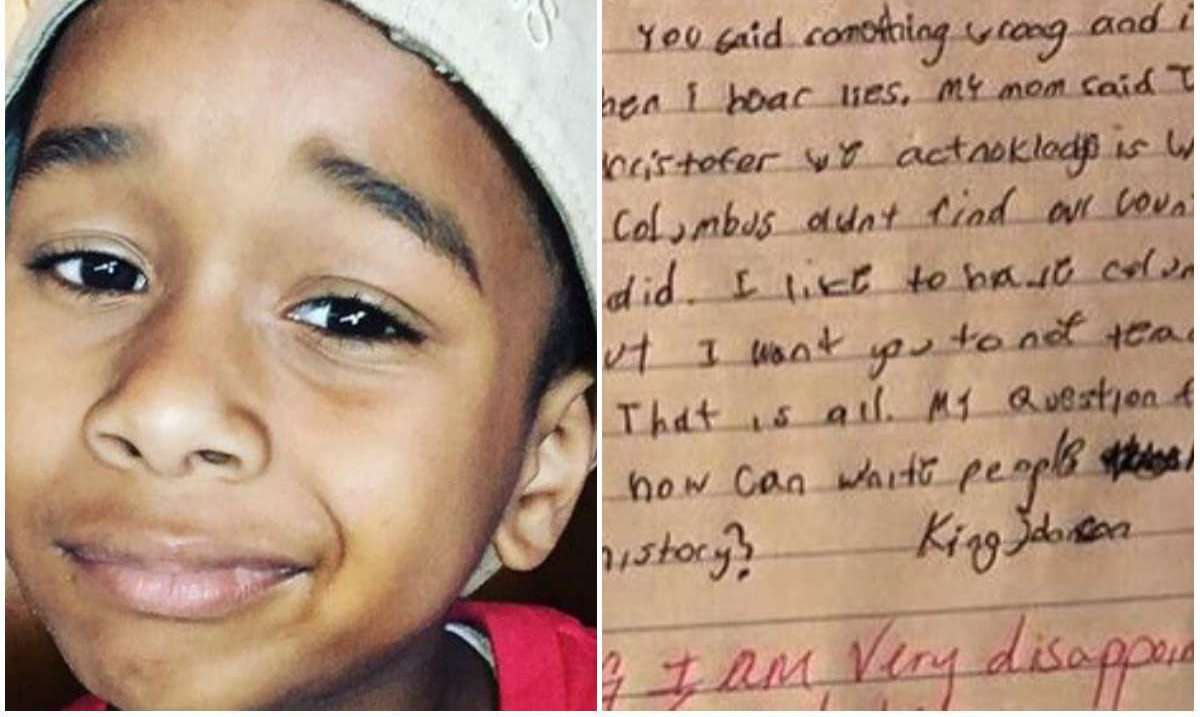 You said somothing wrong and i
hen I hoar lies. My mom said T
hristofer we actnokladge is W
Columbus didnt find our coun
did. I like to ha
ut I want you to not tea
That is all. My Question f
how can white people
history? King Johnson
I am Very disappoin